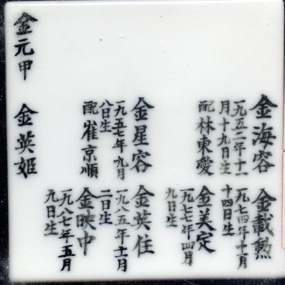 金海容
一九五二年十一
月十九日生
配林東愛
金載勲
一九七四年十月
十四日生
金美定
一九七七年四月
九日生
金星容
一九五七年九月
八日生
配崔京順
金英任
一九八五年十一月
二日生
金映中
一九八七年五月
九日生
金元甲
金英姬